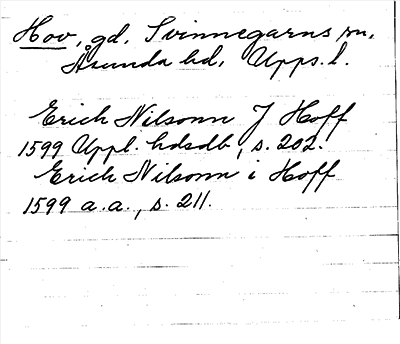 Hov, gd, Svinnegarns sn,
Åsunda hd, Upps. l.
Erich Nilsonn J Hoff
1599 Uppl. hdsdb, s. 202.
Erich Nilsonn i Hoff
1599 a.a., s. 211.